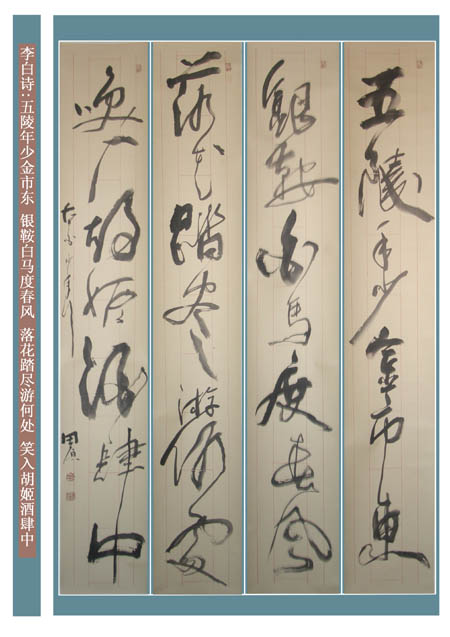 李白诗:五陵年少金市东 银鞍白马度春风 落花踏尽游何处 笑入胡姬酒肆中
五陵年少金市東
銀鞍白馬度春風
落花踏尽游何處
咲入胡姬酒肆中
太白少年行